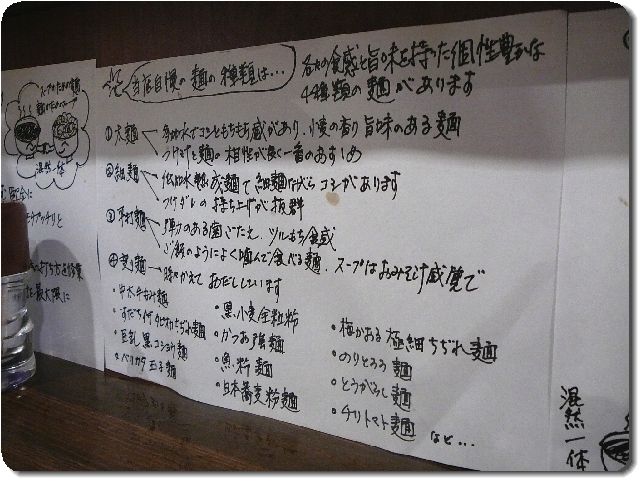 スープのための麺
麺のためのスープ
混然一体
当店自慢の麺の種類は…
各々の食感と旨味を持った個性豊かな
4種類の麺があります
①太麺 多加水でコシともちもち感があり、小麦の香り旨味のある麺
つけダレと麺の相性が良く一番のおすすめ
②細麺 低加水熟成麺で細麺ながらコシがあります
つけダレの持ち上げが抜群
③平打麺 弾力のある歯ごたえ、ツルもち食感
ご飯のようによく噛んで食べる麺、スープはおみそ汁感覚で
④変り麺 時々かえてお出ししています
・中太手もみ麺
・すだち
ちぢれ麺
・豆乳黒コショウ麺
・ベリカタ玉子麺
・黒小麦全粒粉
・かつお節麺
・魚粉麺
・日本蕎麦粉麺
・梅かおる極細ちぢれ麺
・のりとろろ麺
・とうがらし麺
・チリトマト麺 など…
混然一体